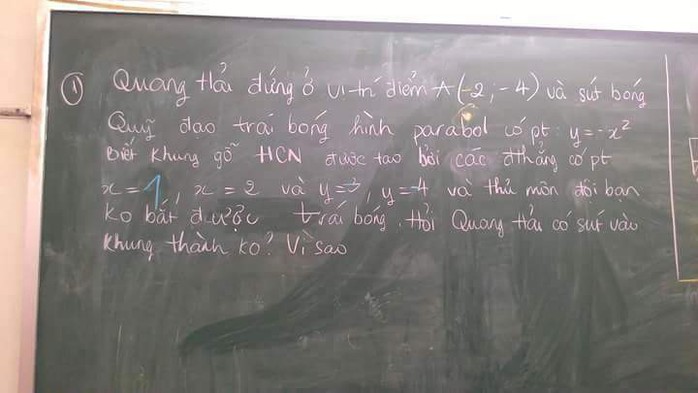 ① Quang Hải đứng ở vị trí điểm A(-2;-4) và sút bóng
Quỹ đạo trái bóng hình parabol có pt: y=-x²
Biết khung gỗ HCN được tạo bởi các đthẳng có pt
x=1, x=2 và y= , y=-4 và thủ môn đội bạn
ko bắt được trái bóng. Hỏi Quang Hải có sút vào
khung thành ko? Vì sao